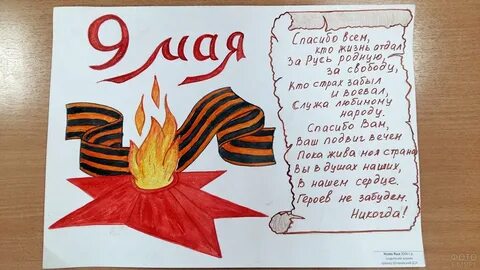 9 мая
Спасибо всем,
кто жизнь отдал
За Русь родную,
за свободу,
Кто страх забыл
и воевал,
Служа любимому
народу.
Спасибо Вам,
Ваш подвиг вечен
Пока жива моя страна
Вы в душах наших,
В нашем сердце.
Героев не забудем.
Никогда!
ФОТО